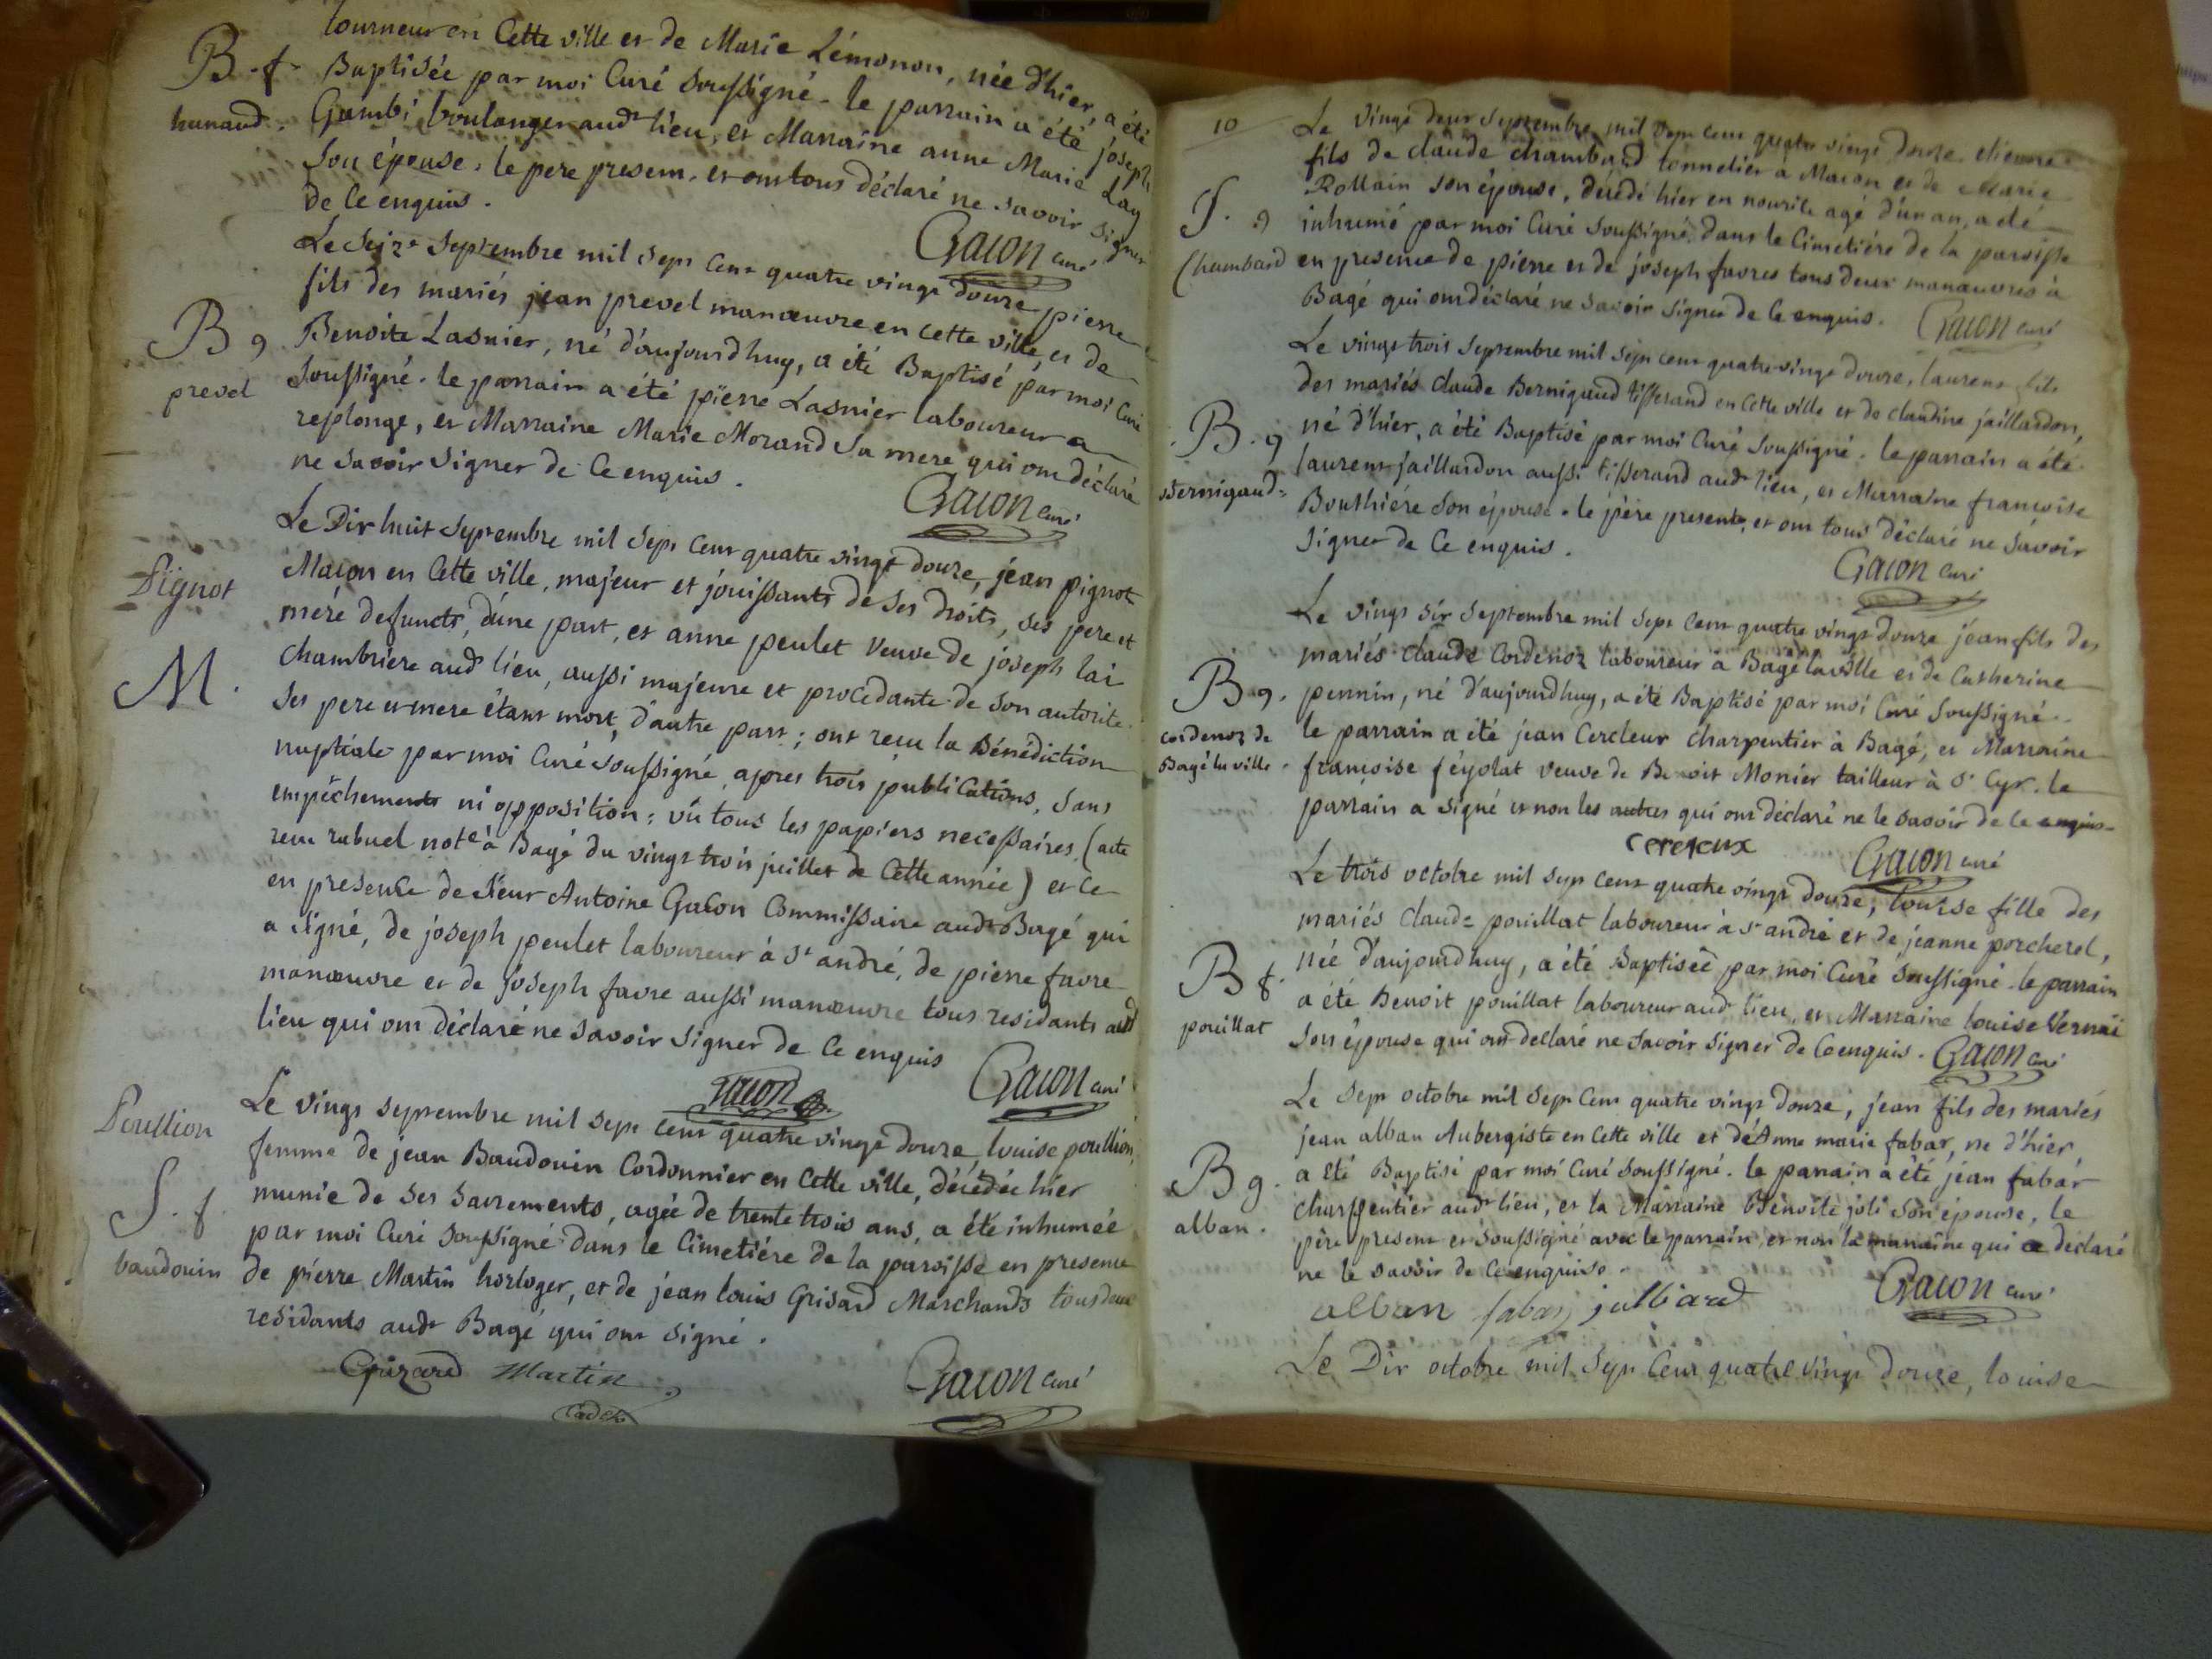 tourneur en Cette ville et de Marie Lémonon, née d'hier, a été
B. f. Baptisée par moi Curé soussigné. le parrain a été joseph
hunaud. Gambi boulanger audt lieu, et Marraine anne Marie Lay
son épouse, le pere present. et ont tous déclaré ne savoir signer
de Ce enquis.
Gacon Curé
Le seize septembre mil sept Cent quatre vingt douze pierre
fils des mariés jean prevel manœuvre en cette ville et de
B g Benoite Lasnier, né d'aujourd'huy, a été Baptisé par moi Curé
prevel soussigné. le parrain a été pierre Lasnier laboureur a
replonge, et Marraine Marie Morand sa mere qui ont déclaré
ne savoir signer de Ce enquis.
Gacon Curé
Le Dix huit septembre mil sept Cent quatre vingt douze, jean pignot
Pignot Maçon en Cette ville, majeur et jouissants de ses droits, ses pere et
meré defuncts, d'une part, et anne peulet veuve de joseph lai
M. chambriere audt lieu, aussi majeure et procedante de son autorite
ses pere et mere étant mort, d'autre part; ont recu la Bénédiction
nuptiale par moi Curé soussigné, apres trois publications, sans
empêchements ni opposition; vû tous les papiers necessaires, (acte
recu rubuel note à Bagé du vingt trois juillet de Cette année) et Ce
en presence de sieur Antoine Gacon Commissaire audt Bagé qui
a signé, de joseph peulet laboureur à st andré, de pierre favre
manœuvre et de joseph favre aussi manœuvre tous residants audt
lieu qui ont déclaré ne savoir signer de Ce enquis
Gacon Gacon Curé
Poullion Le vingt septembre mil sept cent quatre vingt douze louise poullion,
femme de jean Baudouin Cordonnier en Cette ville, décédée hier
S. f. munie de ses sacrements, agée de trente trois ans, a été inhumée
par moi Curé soussigné dans le Cimetiére de la paroisse en presence
baudouin de pierre Martin horloger, et de jean louis Grisard Marchands tous deux
residants audt Bagé qui ont signé.
Grizard Martin Gacon Curé
Cadet
10
Le vingt deux septembre mil sept cent quatre vingt douze etienne
fils de claude chambard tonnelier a Macon et de Marie
S. g Rollain son épouse, décédé hier en nourite agé d'un an, a été
inhumé par moi Curé soussigné dans le Cimetiére de la paroisse
Chambard en presence de pierre et de joseph favres tous deux manœuvres à
Bagé qui ont déclaré ne savoir signer de Ce enquis. Gacon Curé
Le vingt trois septembre mil sept cent quatre vingt douze, laurent fils
des mariés claude Bernigaud tisserand en Cette ville et de claudine jaillardon,
B. g né d'hier, a été Baptisé par moi Curé soussigné. le parrain a été
Bernigaud laurent jaillardon aussi tisserand audt lieu, et Marraine françoise
Bouthiére son épouse. le père present, et ont tous déclaré ne savoir
signer de Ce enquis.
Gacon Curé
Le vingt six septembre mil sept Cent quatre vingt douze jean fils des
mariés claude Cordenoz laboureur à Bagé laville et de Catherine
B g. pennin, né d'aujourd'huy, a été Baptisé par moi Curé soussigné.
cordenoz de le parrain a été jean Cercleux charpentier à Bagé, et Marraine
Bagé la ville. françoise féyolat veuve de Benoit Monier tailleur à st Cyr. le
parrain a signé et non les autres qui ont déclaré ne le savoir de Ce enquis
Cercleux Gacon curé
Le trois octobre mil sept cent quatre vingt douze, louise fille des
mariés claude pouillat laboureur à st andré et de jeanne porcherel,
B f. née d'aujourd'huy, a été Baptisée par moi Curé soussigné. le parrain
pouillat a été Benoit pouillat laboureur audt lieu, et Marraine louise Vernai
son épouse qui ont declaré ne savoir signer de Ce enquis. Gacon Curé
Le sept octobre mil sept Cent quatre vingt douze, jean fils des mariés
jean alban Aubergiste en Cette ville et de Anne marie fabar, né d'hier,
B g. a été Baptisé par moi Curé soussigné. le parrain a été jean fabar
alban. charpentier audt lieu, et la Marraine Benoite joli son épouse, le
père present et soussigné avec le parrain, et non la marraine qui a declaré
ne le savoir de Ce enquise.
alban fabar julliard Gacon Curé
Le Dix octobre mil sept Cent quatre vingt douze, louise